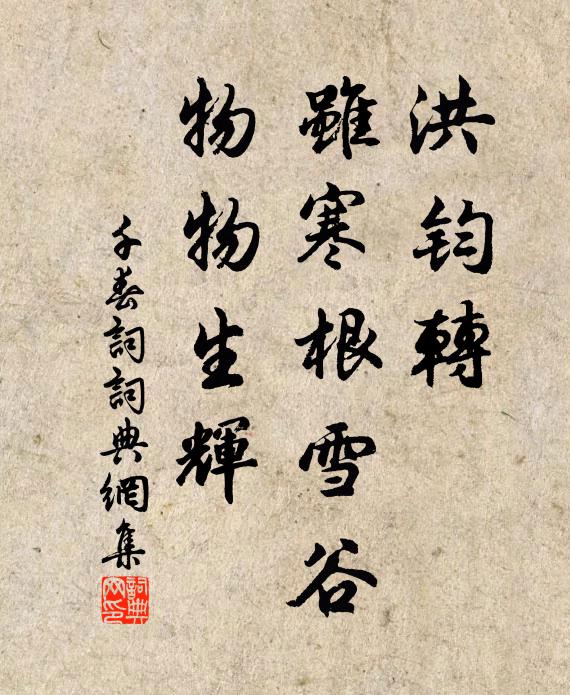 洪鈞轉
雖寒根雪谷
物物生輝
千春詞詞典網集
詞典網印